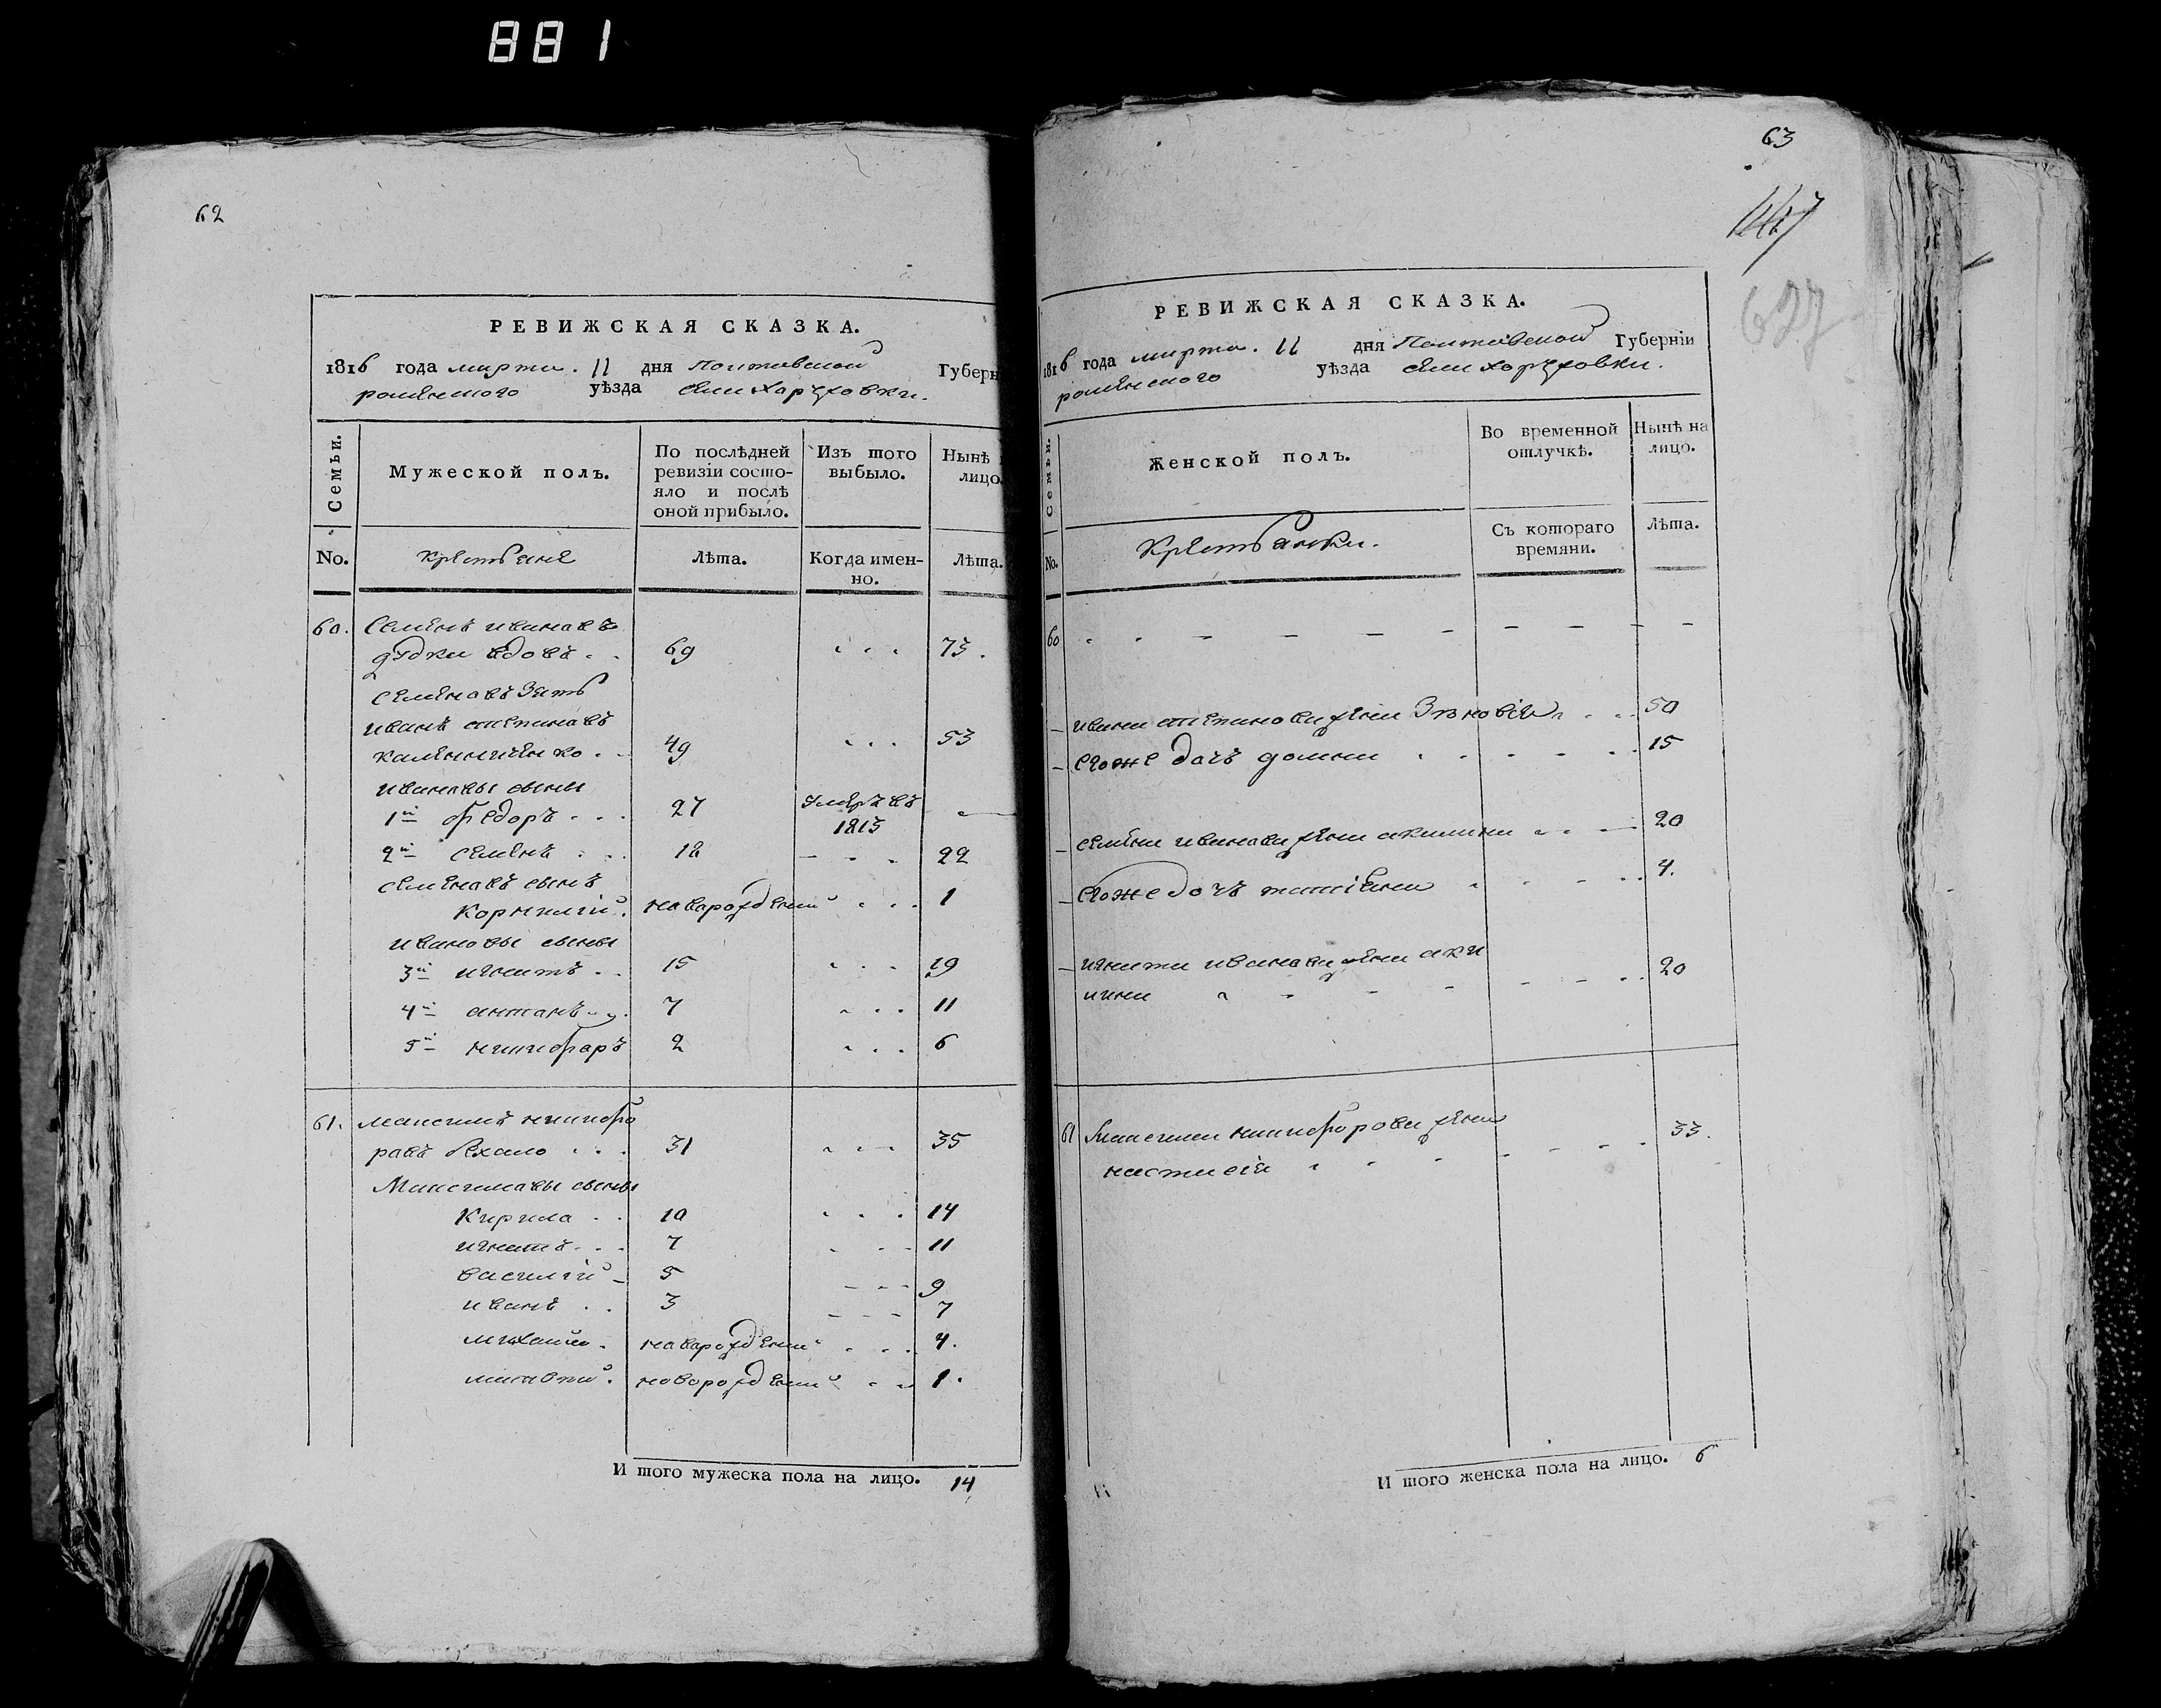 881
62
РЕВИЖСКАЯ СКАЗКА.
1816 года марта 11 дня Полтавской Губерн
роменского уѣзда села Харковки.
Семьи.
Мужеской полъ.
По послѣдней ревизіи состо-
яло и послѣ
оной прибыло.
Изъ того
выбыло.
Нынѣ
лицо.
No.
крестьяне
Лѣта.
Когда имен-
но.
Лѣта.
60. Семенъ ивановъ
69 73.
семеновъ зять
иванъ степановъ
49 53
ивановы сыны
1й федоръ 27 умеръ въ 1813
2й семенъ 18 22
семеновъ сынъ
корнилій новорожденый 1
ивановы сыны
3й игнатъ 15 19
4й антонъ 7 11
5й никифоръ 2 6
61. максимъ никифо
ровъ 31 35
Максимовы сыны
Кирила 10 14
игнатъ 7 11
василій 5 9
иванъ 3 7
михайло новорожденый 4.
новорожденый 1.
И того мужеска пола на лицо. 14
63
РЕВИЖСКАЯ СКАЗКА.
1816 года марта 11 дня Полтавской Губерніи
роменского уѣзда села Харковки.
Семьи.
Женской полъ.
Во временной
отлучкѣ.
Нынѣ на
лицо.
No.
Крестьянки.
Съ котораго
времяни.
Лѣта.
60
ивана степанова жена Зѣновія 50
егоже дочь домна 15
семена иванова жена акилина 20
егоже дочь татіана 4.
игната иванова жена аки
лина 20
61 Максима никифорова жена
настасія 33.
И того женска пола на лицо. 6